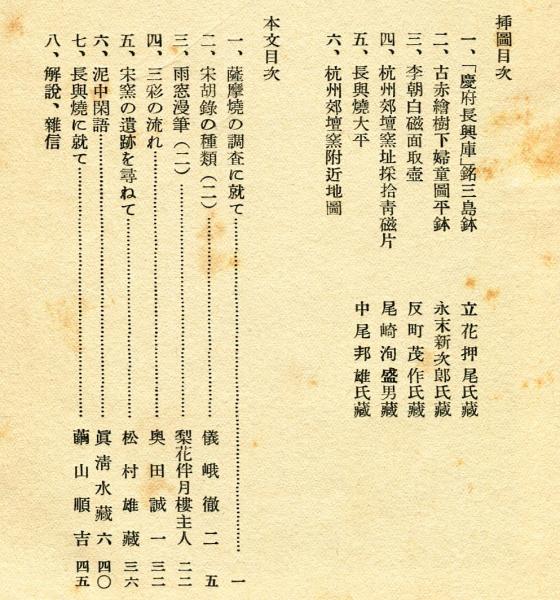 挿圖目次
一、「慶府長興庫」銘三島鉢　立花押尾氏藏
二、古赤繪樹下婦童圖平鉢　永末新次郎氏藏
三、李朝白磁面取壺　反町茂作氏藏
四、杭州郊壇窯址採拾青磁片　尾崎洵盛男藏
五、長與燒大平　中尾邦雄氏藏
六、杭州郊壇窯附近地圖
本文目次
一、薩摩燒の調査に就て………一
二、宋胡錄の種類（二）………儀峨徹二　五
三、雨窓漫筆（二）………梨花伴月樓主人　二二
四、三彩の流れ………奥田誠一　三二
五、宋窯の遺跡を尋ねて………松村雄藏　三六
六、泥中閑語………眞清水藏六　四〇
七、長與燒に就て………繭山順吉　四五
八、解說、雜信